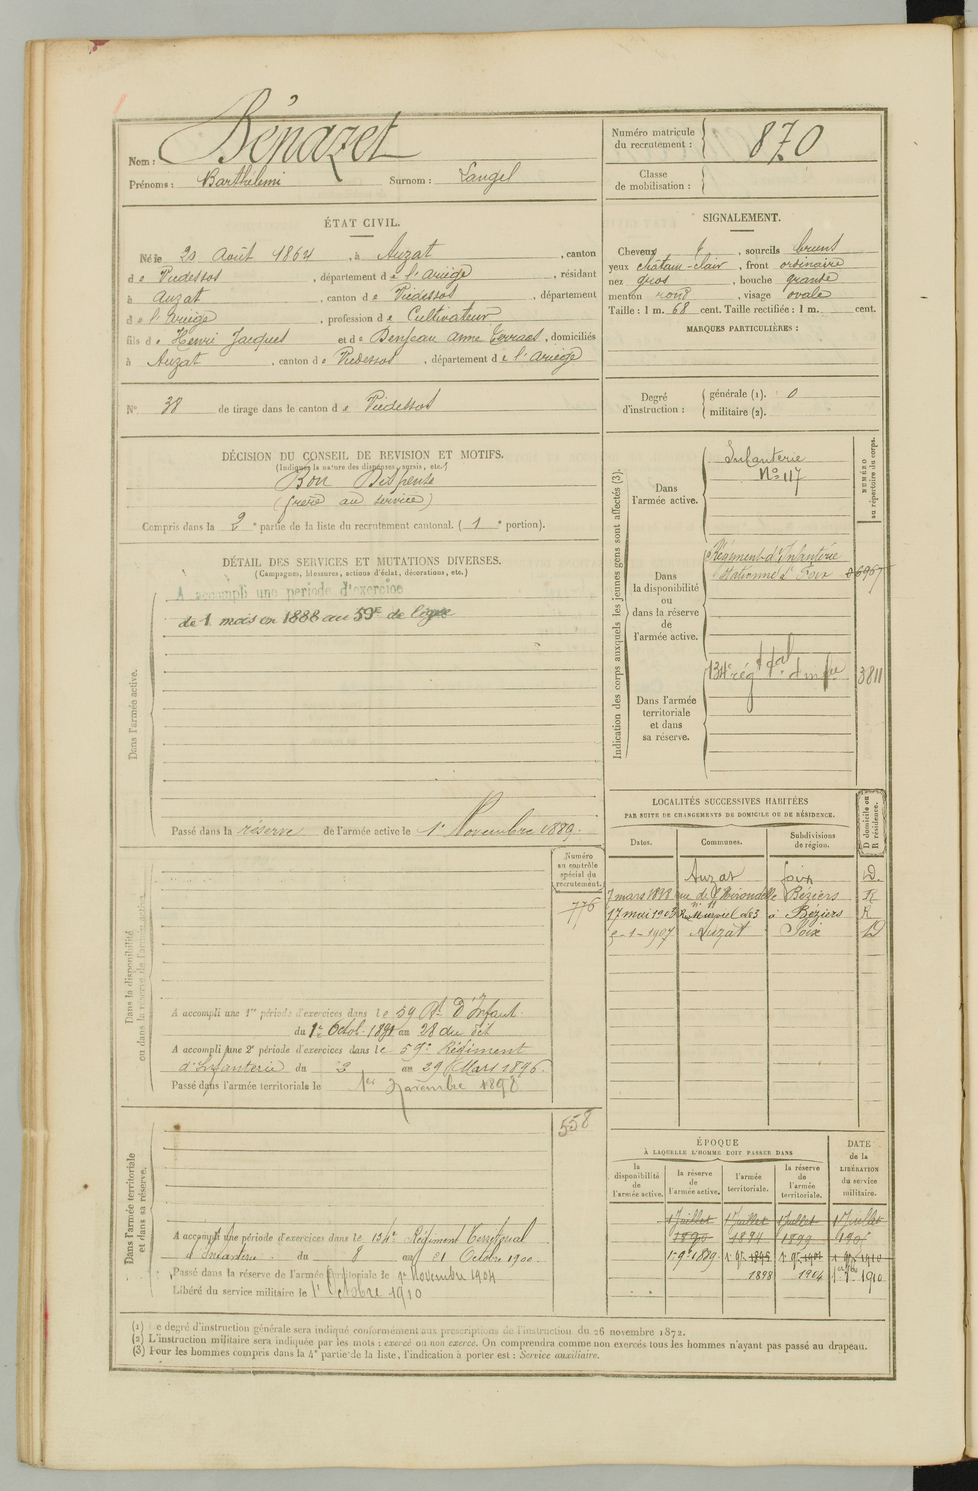 Nom : Bénazet
Prénoms : Barthélemi Surnom : Langel
ÉTAT CIVIL.
Né le 20 Août 1864, à Auzat, canton
de Vicdessos, département de l'Ariège, résidant
à Auzat, canton de Vicdessos, département
de l'Ariège, profession de Cultivateur
fils de Henri Jacques et de Denjean Anne, domiciliés
à Auzat, canton de Vicdessos, département de l'Ariège
N° 38 de tirage dans le canton de Vicdessos
DÉCISION DU CONSEIL DE REVISION ET MOTIFS.
(Indiquer la nature des dispenses, sursis, etc.)
Bon Dispensé
(frère au service)
Compris dans la 2e partie de la liste du recrutement cantonal. (1e portion).
DÉTAIL DES SERVICES ET MUTATIONS DIVERSES.
(Campagnes, blessures, actions d'éclat, décorations, etc.)
Dans l'armée active.
A accompli une période d'exercice
de 1 mois en 1888 au 59E de ligne
Passé dans la réserve de l'armée active le 1er Novembre 1889.
Numéro
au contrôle
spécial du
recrutement.
776
Dans la disponibilité
ou dans la réserve de l'armée active.
A accompli une 1re période d'exercices dans le 59 Rt D'Infant.
du 1er Octob. 1891 au 28 du dit
A accompli une 2e période d'exercices dans le 59e Régiment
d'Infanterie du 2 au 29 Mars 1896.
Passé dans l'armée territoriale le 1er Novembre 1898
558
Dans l'armée territoriale
et dans sa réserve.
A accompli une période d'exercices dans le 134e Régiment Territorial
d'Infanterie du 8 au 21 Octobre 1900.
Passé dans la réserve de l'armée territoriale le 1er Novembre 1904
Libéré du service militaire le 1er Octobre 1910
Numéro matricule
du recrutement : 870
Classe
de mobilisation :
SIGNALEMENT.
Cheveux, sourcils bruns
yeux châtain-clair, front ordinaire
nez gros, bouche grande
menton rond, visage ovale
Taille : 1 m. 68 cent. Taille rectifiée : 1 m. cent.
MARQUES PARTICULIÈRES :
Degré
d'instruction :
générale (1). 0
militaire (2).
Indication des corps auxquels les jeunes gens sont affectés (3).
NUMÉRO
au répertoire du corps.
Dans
l'armée active.
Infanterie
N° 117
Dans
la disponibilité
ou
dans la réserve
de
l'armée active.
Régiment d'Infanterie
stationné à Foix 6967
Dans l'armée
territoriale
et dans
sa réserve.
134e rég tal d'infie 3811
LOCALITÉS SUCCESSIVES HABITÉES
PAR SUITE DE CHANGEMENTS DE DOMICILE OU DE RÉSIDENCE.
D domicile ou
R résidence.
Dates. Communes. Subdivisions
de région.
Auzat Foix D.
7 mars 1898 rue de l'Hirondelle Béziers R
17 mai 1903 Béziers R
5-1-1907 Auzat Foix D
ÉPOQUE
À LAQUELLE L'HOMME DOIT PASSER DANS
DATE
de la
LIBÉRATION
du service
militaire.
la
disponibilité
de
l'armée active.
la réserve
de
l'armée active.
l'armée
territoriale.
la réserve
de
l'armée
territoriale.
1 Juillet 1 Juillet 1 Juillet 1 Juillet
1890 1894 1899
1er 9e 1889 1er 9e 1895 1er 9e 1901 1er 9e 1910
1898 1904 1910
(1) Le degré d'instruction générale sera indiqué conformément aux prescriptions de l'instruction du 26 novembre 1872.
(2) L'instruction militaire sera indiquée par les mots : exercé ou non exercé. On comprendra comme non exercés tous les hommes n'ayant pas passé au drapeau.
(3) Pour les hommes compris dans la 4e partie de la liste, l'indication à porter est : Service auxiliaire.